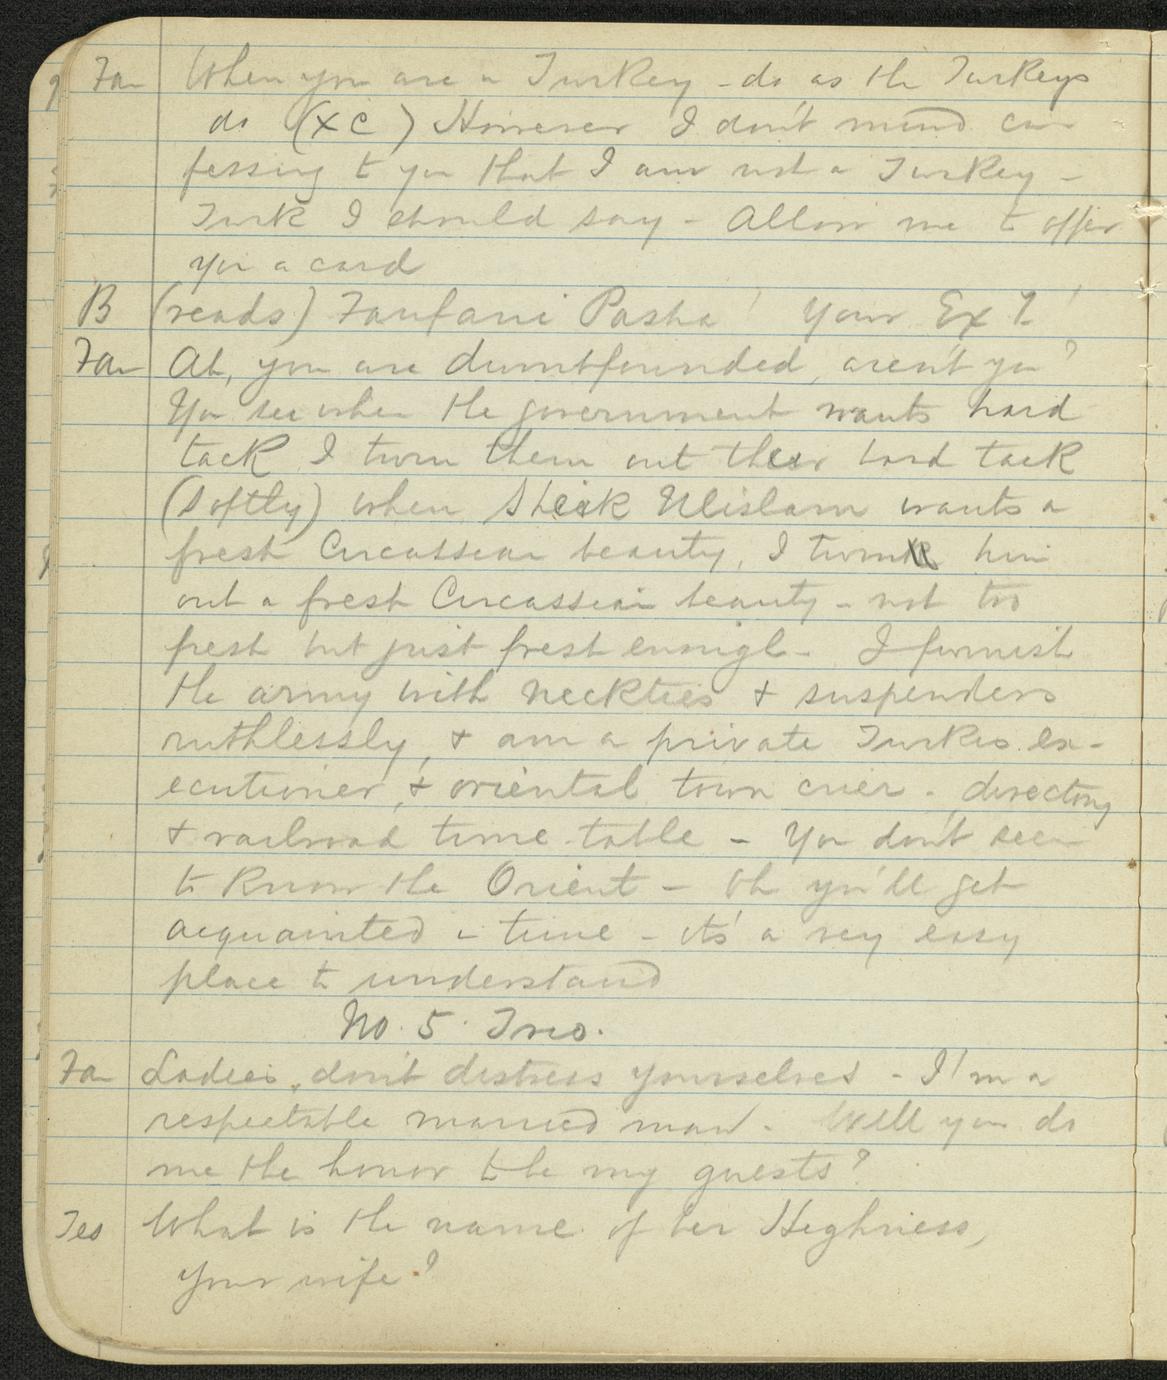 Fan When you are a Turkey - do as the Turkeys
do (x C) However I don't mind con
fessing to you that I am not a Turkey -
Turk I should say - Allow me to offer
you a card
B (reads) Fanfani Pasha! Your Ex'l!
Fan Ah, you are dumbfounded, aren't you?
You see when the government wants hard
tack I turn them out their hard tack
(softly) when Sheik Ulislam wants a
fresh Circassian beauty, I turn him
out a fresh Circassian beauty - not too
fresh but just fresh enough - I furnish
the army with neckties & suspenders
ruthlessly, & am a private Turkis ex-
ecutioner, & oriental town crier - directory
& railroad time table - You don't seem
to know the Orient - Oh you'll get
acquainted in time - it's a very easy
place to understand
No. 5. Trio.
Fan Ladies, don't distress yourselves - I'm a
respectable married man. Will you do
me the honor to be my guests?
Tes What is the name of her Highness,
your wife?